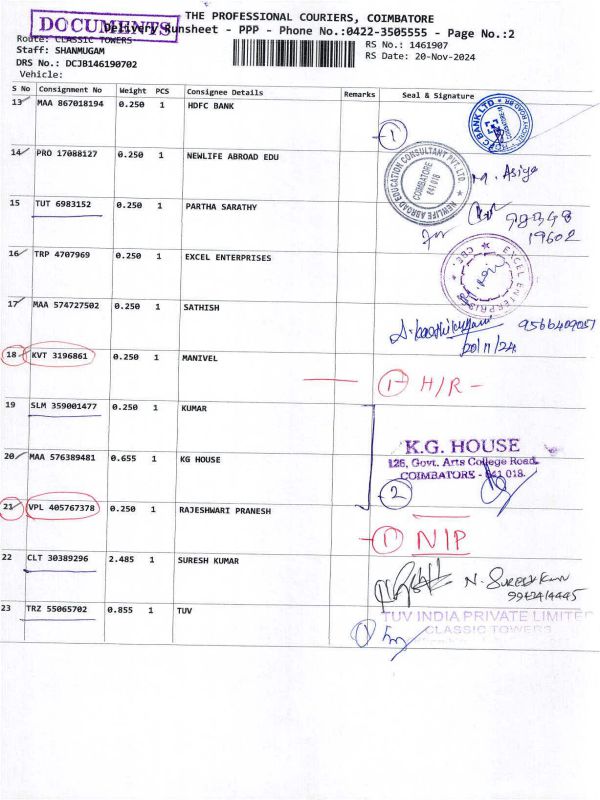 THE PROFESSIONAL COURIERS, COIMBATORE
DOCUMENTS
Delivery Runsheet - PPP - Phone No.:0422-3505555 - Page No.:2
Route: CLASSIC TOWERS
RS No.: 1461907
Staff: SHANMUGAM
RS Date: 20-Nov-2024
DRS No.: DCJB146190702
Vehicle:
S No Consignment No Weight PCS Consignee Details Remarks Seal & Signature
13 MAA 867018194 0.250 1 HDFC BANK
1
14 PRO 17088127 0.250 1 NEWLIFE ABROAD EDU
NEWLIFE ABROAD EDUCATION CONSULTANT PVT. LTD
COIMBATORE
641 018
M. Asiya
15 TUT 6983152 0.250 1 PARTHA SARATHY
for
98348
19602
16 TRP 4707969 0.250 1 EXCEL ENTERPRISES
EXCEL ENTERPRISES CBE.
17 MAA 574727502 0.250 1 SATHISH
20/11/24
18 KVT 3196861 0.250 1 MANIVEL
1 H/R -
19 SLM 359001477 0.250 1 KUMAR
20 MAA 576389481 0.655 1 KG HOUSE
K.G. HOUSE
126, Govt. Arts College Road,
COIMBATORE - 641 018.
2
21 VPL 405767378 0.250 1 RAJESHWARI PRANESH
1 NIP
22 CLT 30389296 2.485 1 SURESH KUMAR
N. SURESH KUMAR
23 TRZ 55065702 0.855 1 TUV
TUV INDIA PRIVATE LIMITED
CLASSIC TOWERS
1